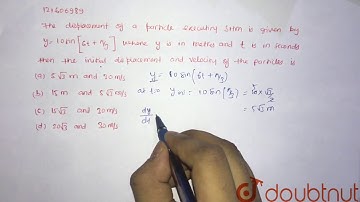 121606989
The displacement of a particle executing SHM is given by
y = 10 sin [6t + π/3] where y is in metres and t is in seconds
then the initial displacement and velocity of the particles is
(a) 5√3 m and 30 m/s
(b) 15 m and 5√3 m/s
(c) 15√3 and 30 m/s
(d) 20√3 and 30 m/s
y = 10 sin (6t + π/3)
at t=0 y = 10 sin (π/3) = 10 × √3/2
= 5√3 m
dy/dt
doubtnut